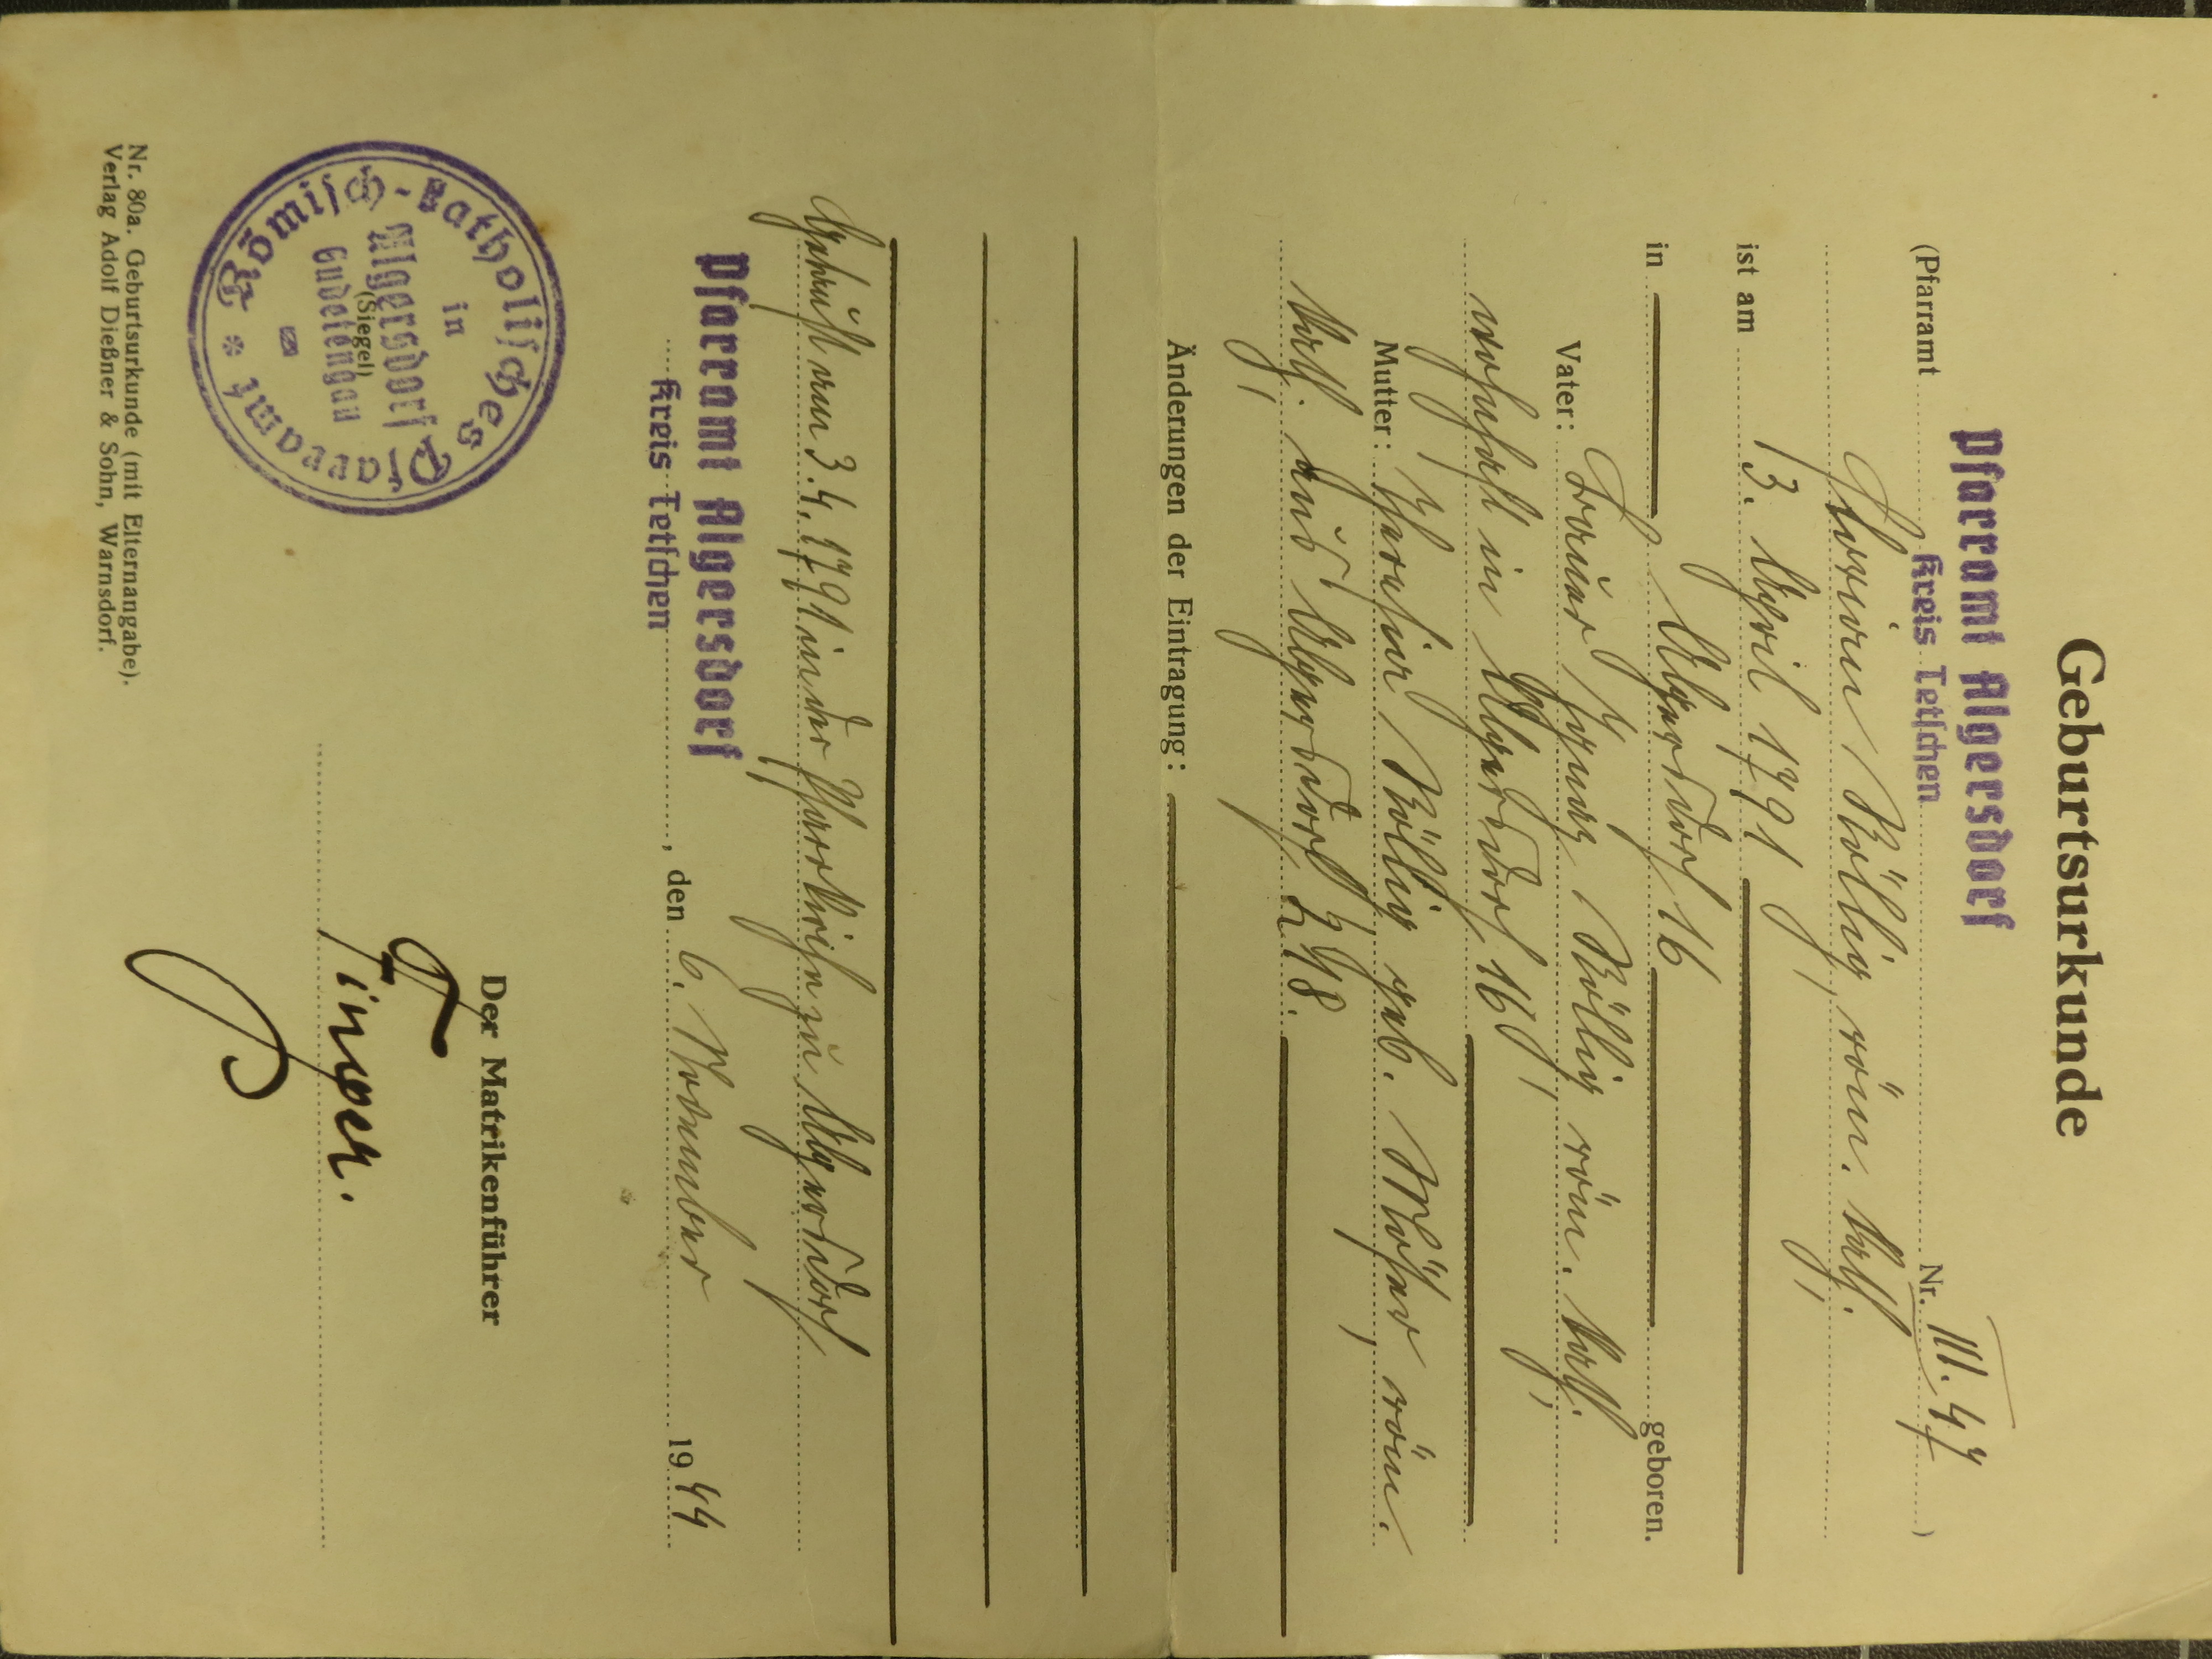 Geburtsurkunde
Pfarramt Algersdorf
(Pfarramt Kreis Tetschen Nr. III. 47 )
Florian Röllig, röm. kath.
ist am 3. April 1791
in Algersdorf 16 geboren.
Vater: Bauer Ignaz Röllig, röm. kath.
wohnhaft in Algersdorf 16
Mutter: Theresia Röllig, geb. Möser, röm.
kath. aus Algersdorf 218.
Änderungen der Eintragung:
Getauft am 3.4.1791 in der Pfarrkirche zu Algersdorf
Pfarramt Algersdorf
Kreis Tetschen, den 6. November 1944
Der Matrikenführer
Römisch-katholisches Pfarramt *
in
Algersdorf
(Siegel)
Sudetengau
Finger.
P
Nr. 80a. Geburtsurkunde (mit Elternangabe).
Verlag Adolf Dießner & Sohn, Warnsdorf.